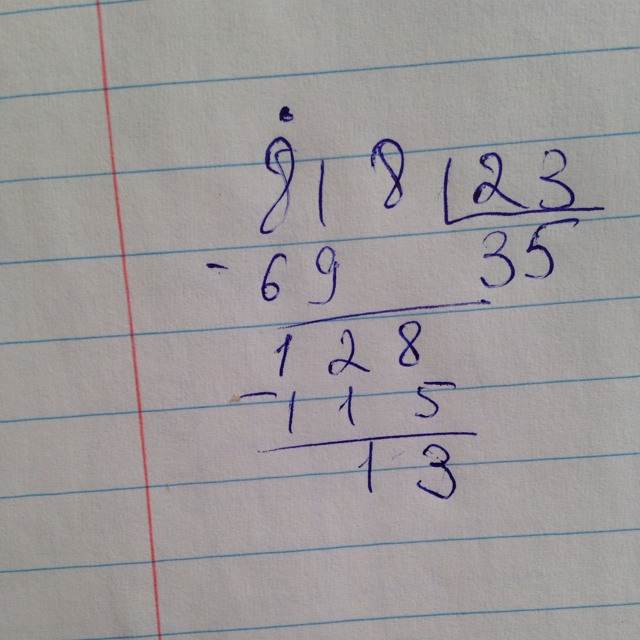 818 23
- 69 35
128
- 115
13